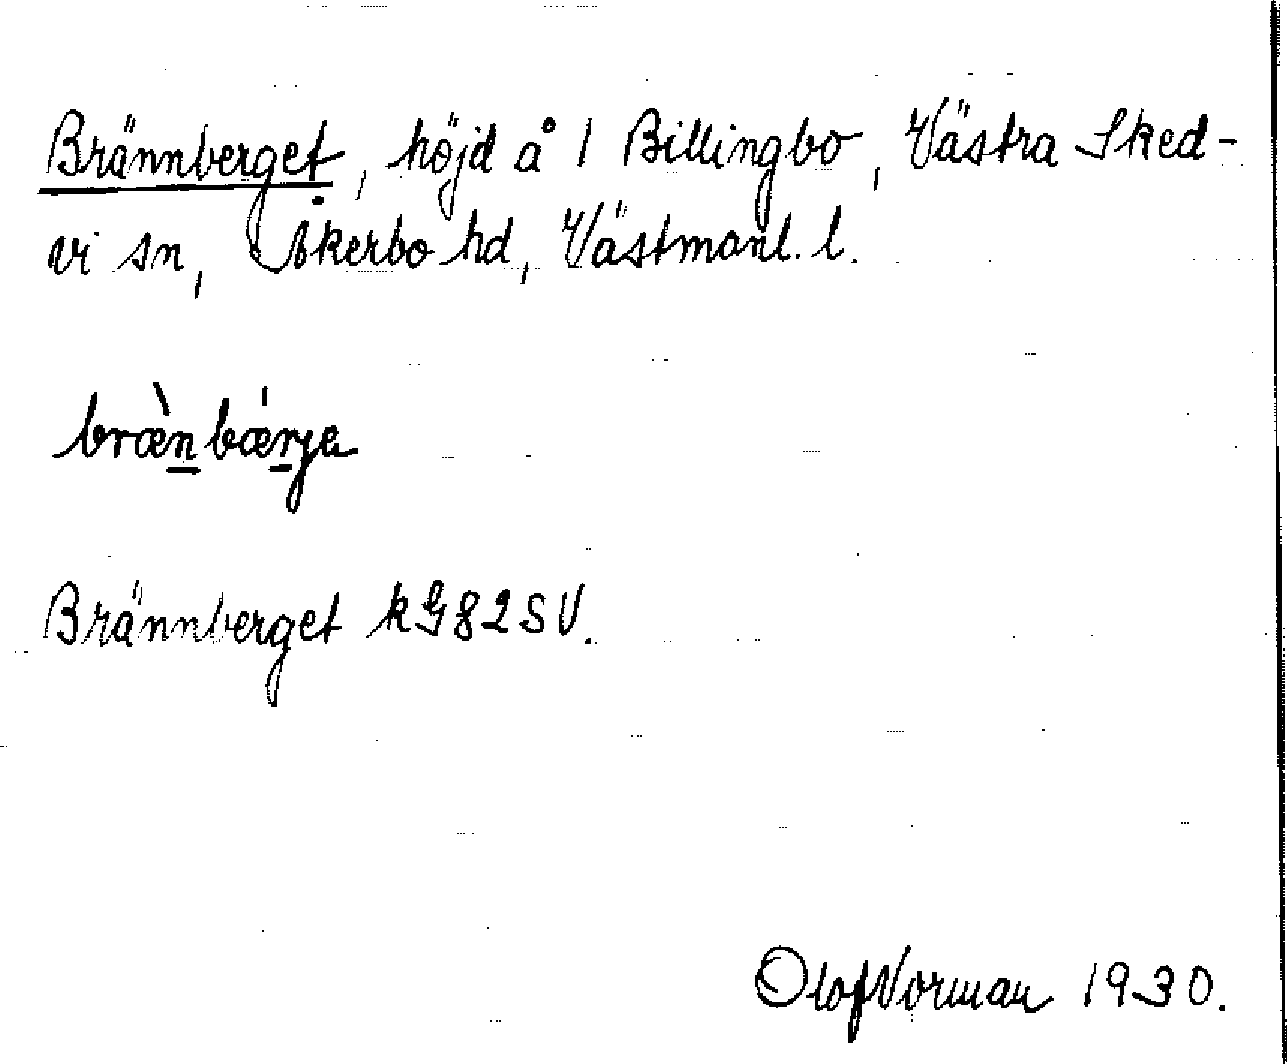 Brännberget, höjd å 1 Billingbo, Västra Sked-
vi sn, Åkerbo hd, Västmanl. l.
bræ̀nbǽrja
Brännberget kG82SV.
Olof Norman 1930.